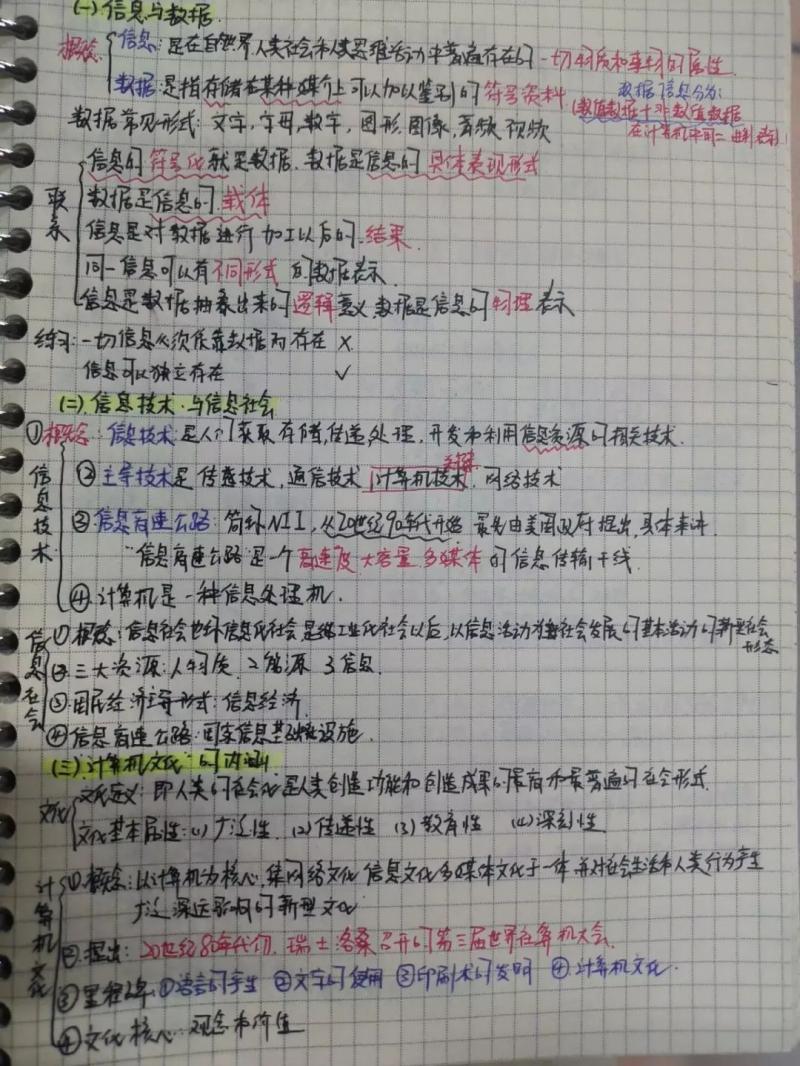 (一)信息与数据
概念 信息:是在自然界、人类社会和人类思维活动中普遍存在的一切物质和事物的属性
数据:是指存储在某种媒介上可以加以鉴别的符号资料 数据信息分为:
(数值数据+非数值数据
数据常见形式:文字,字母,数字,图形,图像,音频,视频 在计算机中用二进制表示)
联系 信息的符号化就是数据,数据是信息的具体表现形式
数据是信息的载体
信息是对数据进行加工以后的结果.
同一信息可以有不同形式的数据表示
信息是数据抽象出来的逻辑意义,数据是信息的物理表示
练习:一切信息必须依靠数据而存在 ×
信息可以独立存在 ✓
(二)信息技术与信息社会
信息技术 ①概念:信息技术是人们获取存储,传递,处理,开发和利用信息资源的相关技术.
②主导技术是传感技术,通信技术,计算机技术,网络技术
关键
③信息高速公路:简称NII,从20世纪90年代开始 最先由美国政府提出,具体来讲
"信息高速公路"是一个高速度 大容量 多媒体的信息传输干线.
④计算机是一种信息处理机.
信息社会 ①概念:信息社会也称信息化社会是继工业化社会以后,以信息活动为社会发展的基本活动的新型社会
形态
②三大资源:1物质 2能源 3信息.
③国民经济主导形式:信息经济
④信息高速公路:国家信息基础设施.
(三)"计算机文化"的内涵
文化 文化定义:即人类的社会化是人类创造功能和创造成果的最高和最普遍的社会形式.
文化基本属性:(1)广泛性 (2)传递性 (3)教育性 (4)深刻性
计算机文化 ①概念:以计算机为核心,集网络文化 信息文化 多媒体文化于一体,并对社会生活和人类行为产生
广泛深远影响的新型文化
②提出:20世纪80年代初,瑞士洛桑召开的第三届世界计算机大会.
③里程碑:①语言的产生 ②文字的使用 ③印刷术的发明 ④计算机文化.
④文化核心:观念和价值